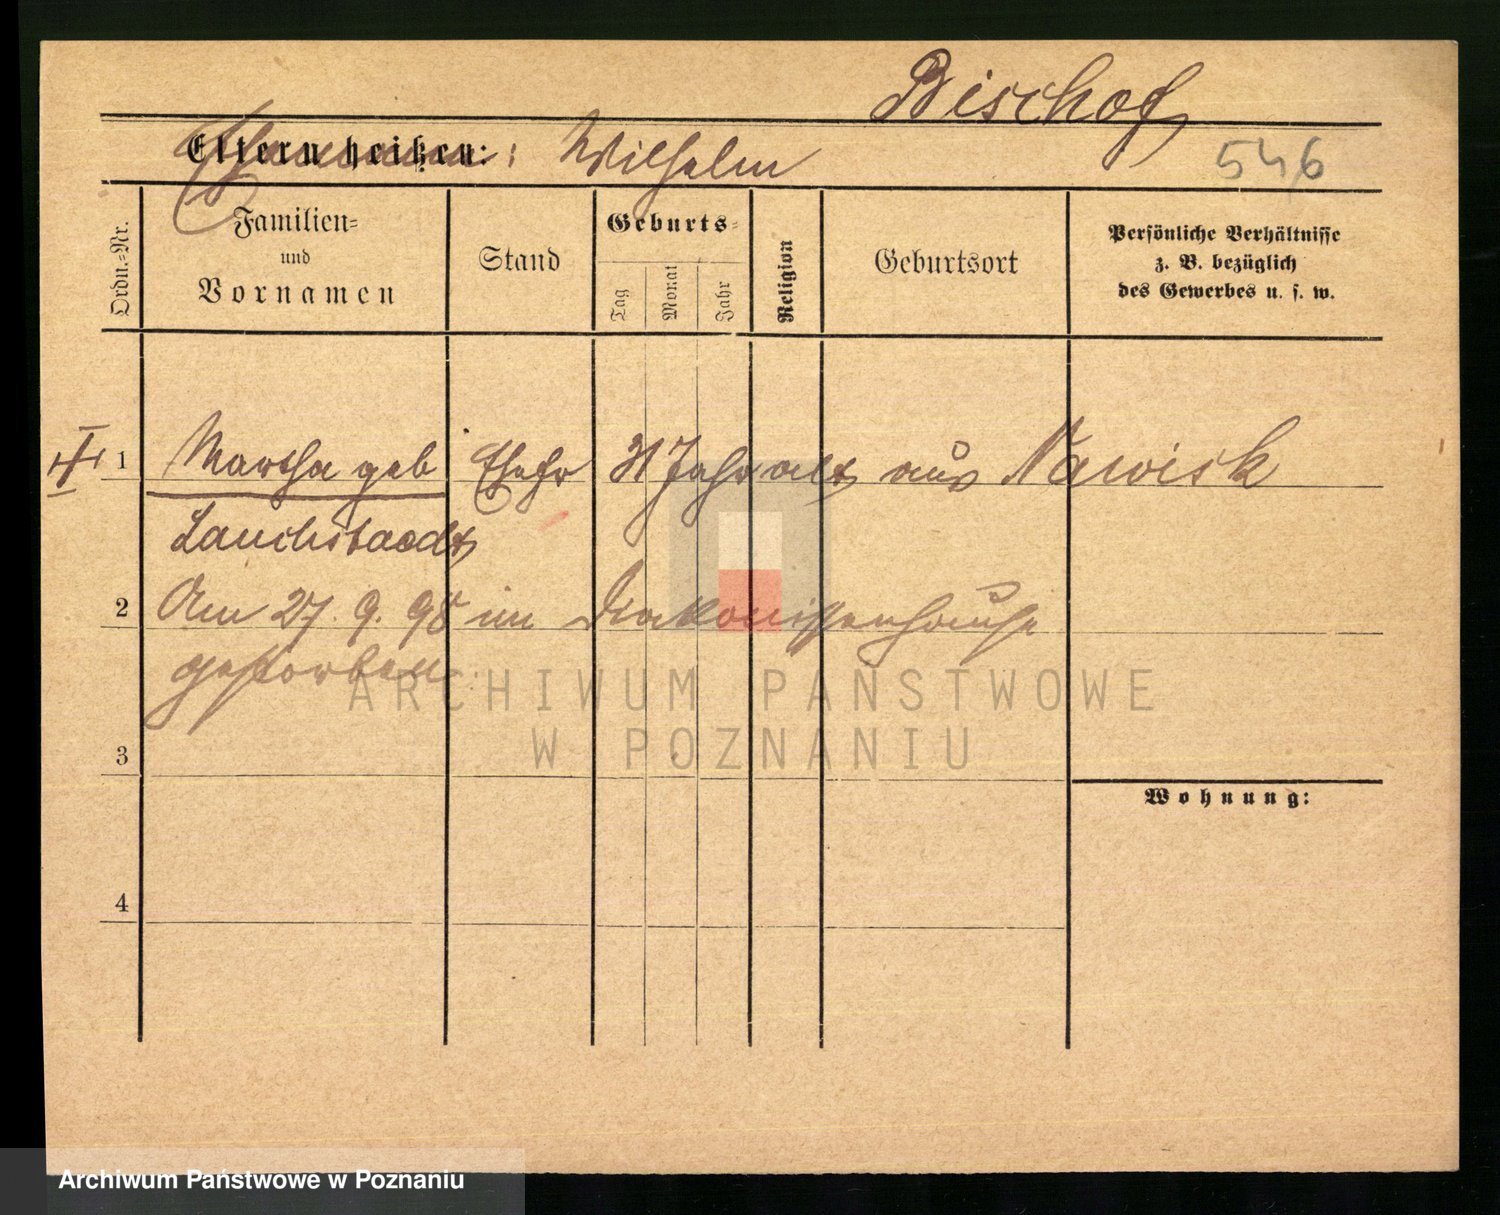 Bischof
Eltern heißen: : Wilhelm
546
Ordn.-Nr.
Familien-
und
Vornamen
Stand
Geburts-
Tag
Monat
Jahr
Religion
Geburtsort
Persönliche Verhältnisse
z. B. bezüglich
des Gewerbes u. s. w.
1 Martha geb Ehefr 31 Jahr alt aus Nawisk
Lauchstaedt
2 Am 27. 9. 98 im Diakonissenhause
gestorben
ARCHIWUM PAŃSTWOWE
W POZNANIU
3
Wohnung:
4
Archiwum Państwowe w Poznaniu